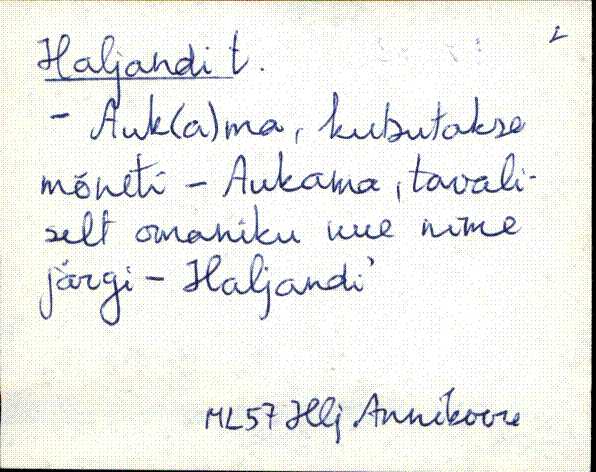 Haljandi t.
- Auk(a)ma, kutsutakse
mõneti - Aukama, tavali-
selt omaniku uue nime
järgi - Haljandi
ML57 Hlj Annikvere